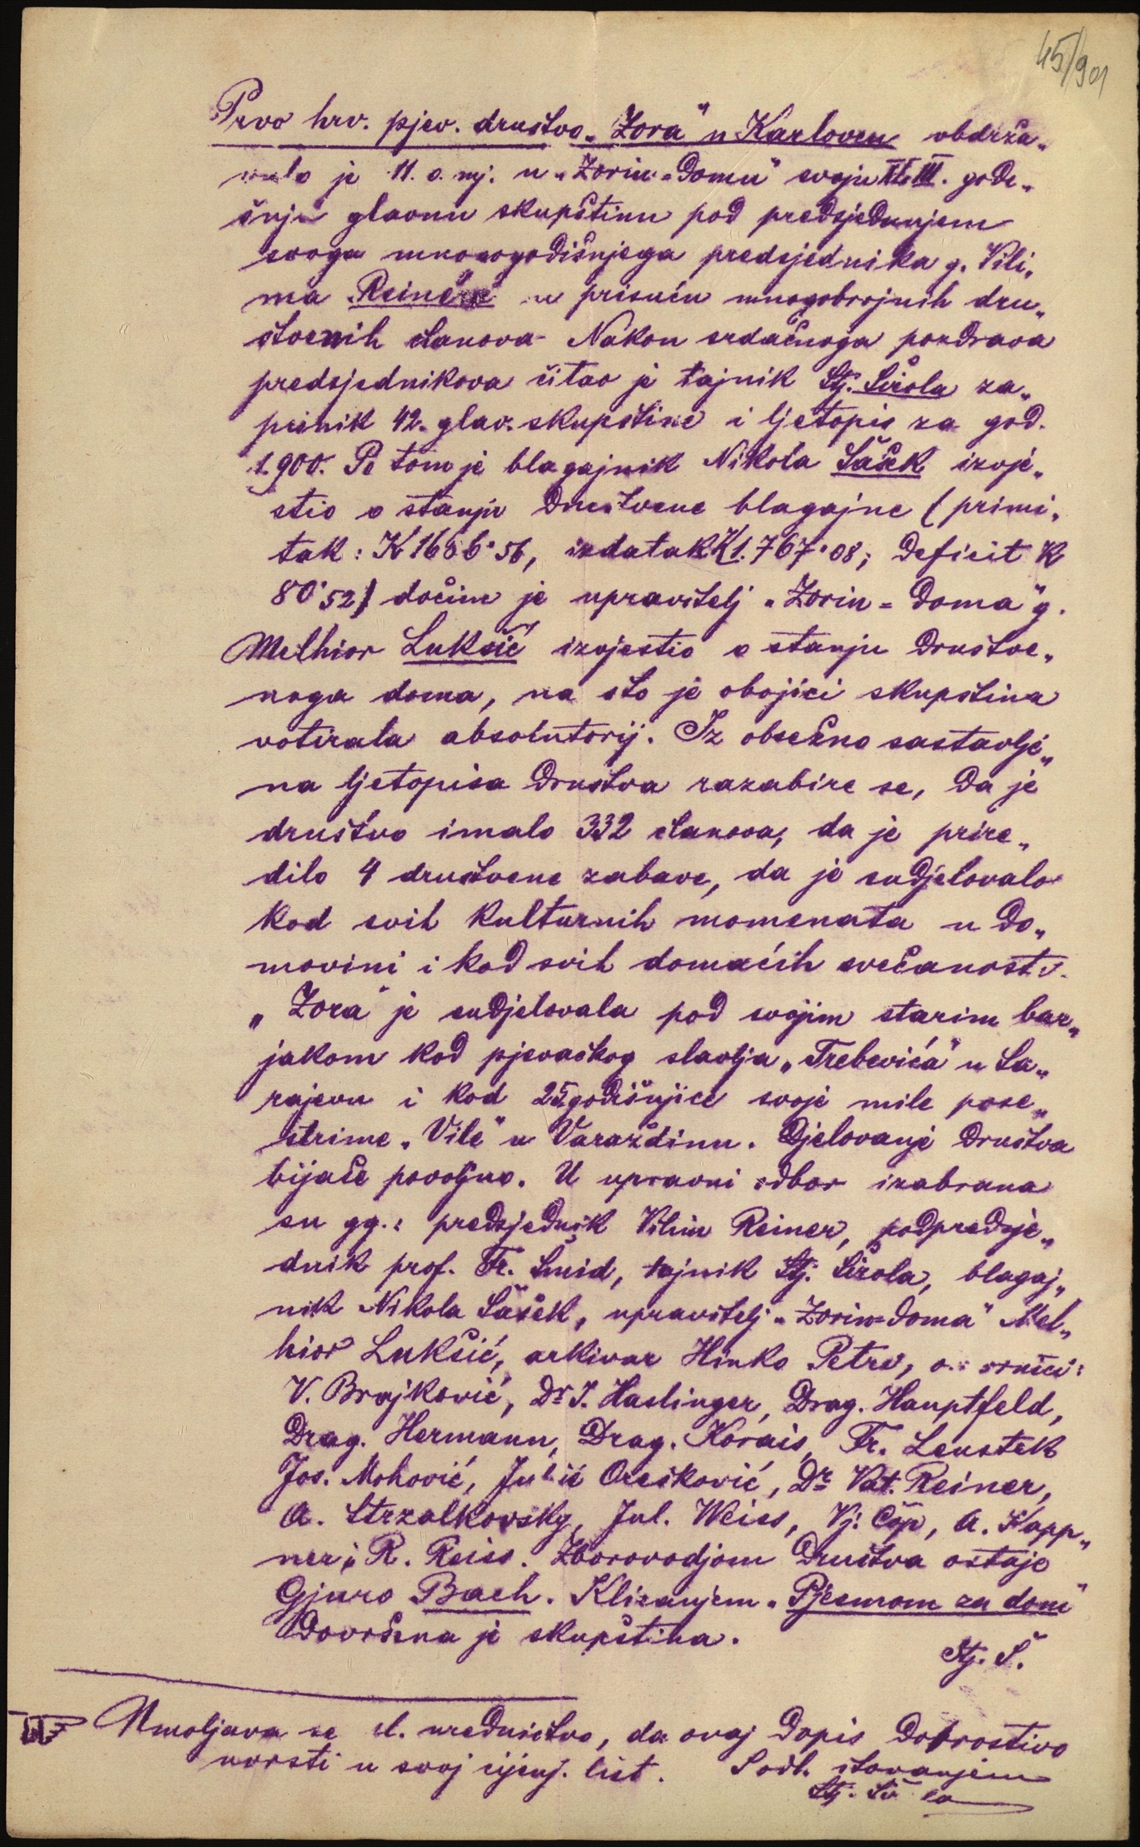 45/901
Prvo hrv. pjev. društvo „Zora" u Karlovcu obdrža„
valo je 11. o. mj. u „Zorin-Domu" svoju XLIII. godi„
šnju glavnu skupštinu pod predsjedanjem
svoga mnogogodišnjega predsjednika g. Vili„
ma Reinera u prisuću mnogobrojnih dru„
štvenih članova. Nakon srdačnoga pozdrava
predsjednikova čitao je tajnik Stj. Širola za„
pisnik 42. glav. skupštine i ljetopis za god.
1900. Po tom je blagajnik Nikola Šašek izvje„
stio o stanju društvene blagajne (primi„
tak: K 1686·56, izdatak K 1.767·08; deficit K
80·52) dočim je upravitelj „Zorin-doma" g.
Melhior Lukšić izvjestio o stanju društve„
noga doma, na što je obojici skupština
votirala absolutorij. Iz obsežno sastavlje„
na ljetopisa društva razabire se, da je
društvo imalo 332 članova, da je prire„
dilo 4 društvene zabave, da je sudjelovalo
kod svih kulturnih momenata u do„
movini i kod svih domaćih svečanosti.
„Zora" je sudjelovala pod svojim starim bar„
jakom kod pjevačkog slavlja „Trebevića" u Sa„
rajevu i kod 25godišnjice svoje mile pose„
strime „Vile" u Varaždinu. Djelovanje društva
bijaše povoljno. U upravni odbor izabrana
su gg.: predsjednik Vilim Reiner, podpredsje„
dnik prof. Fr. Šmid, tajnik Stj. Širola, blagaj„
nik Nikola Šašek, upravitelj „Zorin-doma" Mel„
hior Lukšić, arkivar Hinko Petrs, odbornici:
V. Brajković, Dr. I. Haslinger, Drag. Hauptfeld,
Drag. Hermann, Drag. Korais, Fr. Leustek
Jos. Mohović, Julie Orešković, Dr. Vat. Reiner,
A. Strzalkovsky, Jul. Weiss, Vj. Čop, A. Kapp„
ner i R. Reiss. Zborovodjom društva ostaje
Gjuro Bach. Klicanjem „Pjesmom za dom"
dovršena je skupština.
Stj. Š.
Umoljava se sl. uredništvo, da ovaj dopis dobrostivo
uvrsti u svoj cijenj. list. Sa odl. štovanjem
Stj. Širola